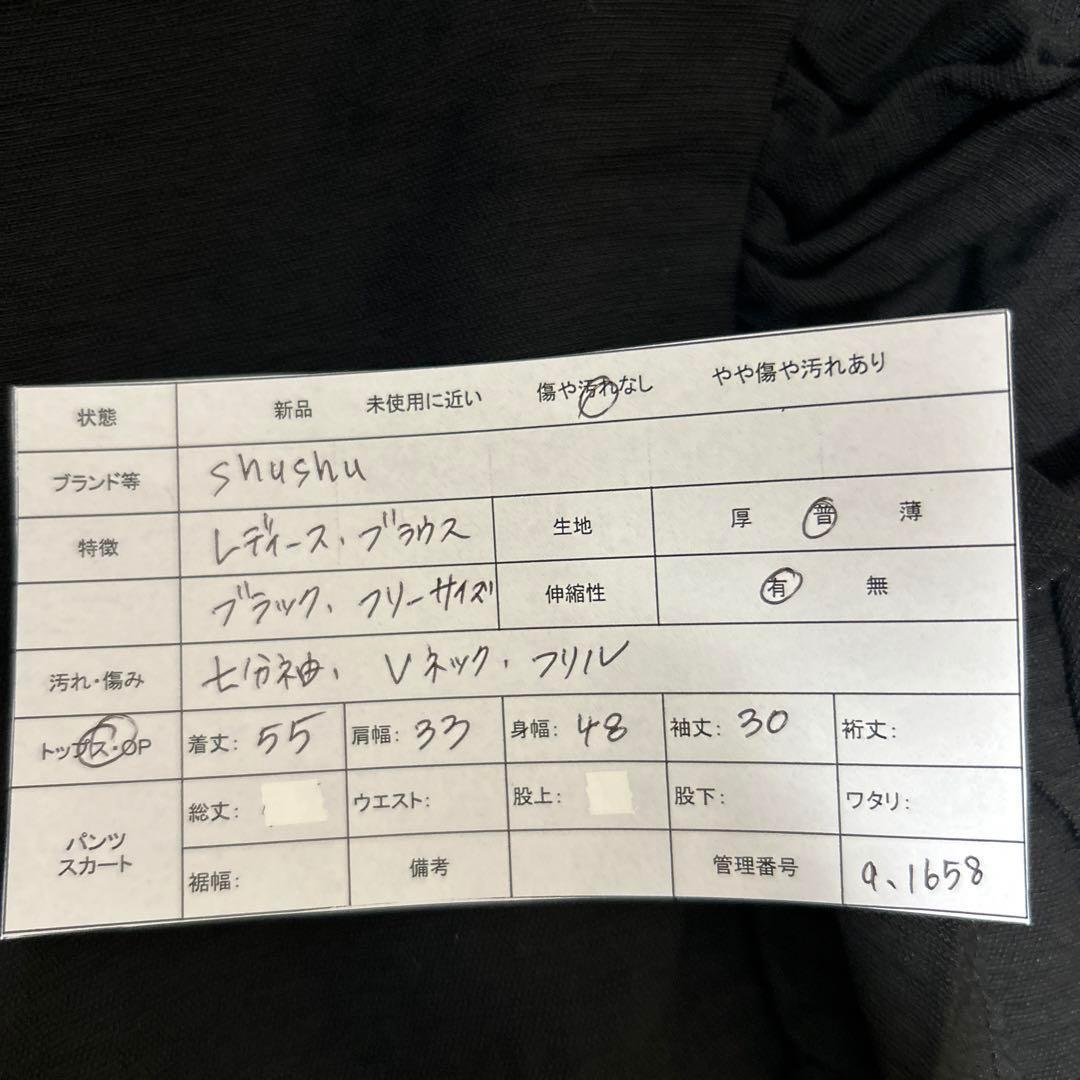 状態 新品 未使用に近い 傷や汚れなし やや傷や汚れあり
ブランド等 shushu
特徴 レディース、ブラウス 生地 厚 普 薄
ブラック、フリーサイズ 伸縮性 有 無
汚れ・傷み 七分袖、Vネック、フリル
トップス・OP 着丈: 55 肩幅: 33 身幅: 48 袖丈: 30 裄丈:
パンツ スカート 総丈: ウエスト: 股上: 股下: ワタリ:
裾幅: 備考 管理番号 a、1658